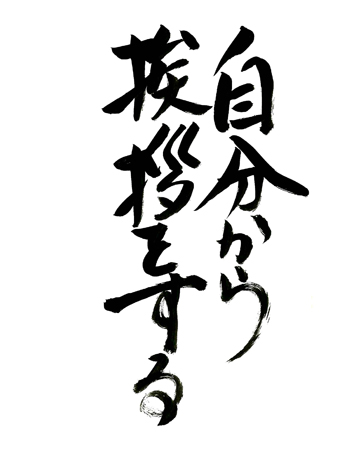 自分から
挨拶をする